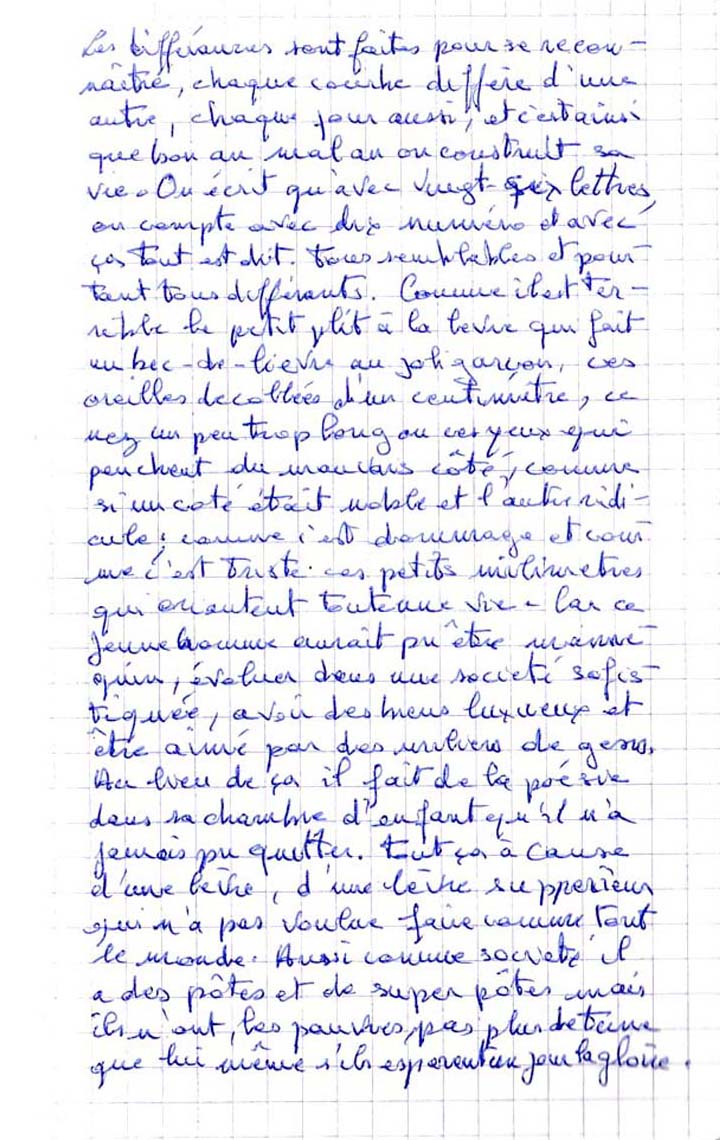 Les différences sont faites pour se recon-
naître, chaque courbe diffère d'une
autre, chaque jour aussi, et c'est ainsi
que bon an mal an on construit sa
vie. On écrit qu'avec vingt-six lettres,
on compte avec dix numéro et avec
ça tout est dit. Tous semblables et pour-
tant tous différants. Comme il est ter-
rible le petit plit à la levre qui fait
un bec-de-lievre au joli garçon, ces
oreilles decollées d'un centimètre, ce
nez un peu trop long ou ces yeux qui
penchent du mauvais côté, comme
si un coté était noble et l'autre ridi-
cule; comme c'est dommage et com
me c'est triste ces petits milimetres
qui oriantent toute une vie. Car ce
jeune homme aurait pu être manne-
quin, évoluer dans une societé sofis-
tiquée, avoir des biens luxueux et
être aimé par des milliers de gens.
Au lieu de ça il fait de la poésie
dans sa chambre d'enfant qu'il n'a
jamais pu quitter. Tout ça à cause
d'une levre, d'une lèvre supperieur
qui n'a pas voulue faire comme tout
le monde. Aussi comme societé il
a des pôtes et de super pôtes mais
ils n'ont, les pauvres, pas plus de
que lui même s'ils esperent un jour la gloire.